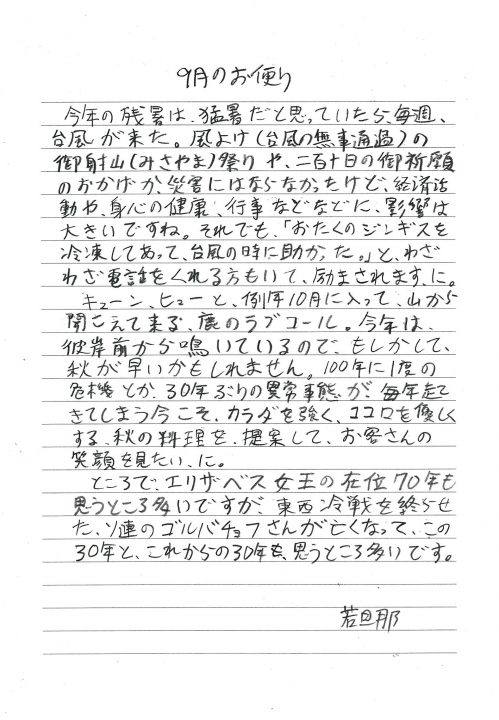 9月のお便り
今年の残暑は、猛暑だと思っていたら、毎週、
台風が来た。風よけ(台風の無事通過)の
御射山(みさやま)祭りや、二百十日の御祈願
のおかげか、災害にはならなかったけど、経済活
動や、身心の健康、行事などなどに、影響は
大きいですね。それでも、「おたくのジンギスを
冷凍してあって、台風の時に助かった。」と、わざ
わざ電話をくれる方もいて、励まされます、に。
キューン、ヒューと、例年10月に入って、山から
聞こえて来る、鹿のラブコール。今年は、
彼岸前から鳴いているので、もしかして、
秋が早いかもしれません。100年に1度の
危機とか、30年ぶりの異常事態が、毎年起
きてしまう今こそ、カラダを強く、ココロを優しく
する、秋の料理を、提案して、お客さんの
笑顔を見たい、に。
ところで、エリザベス女王の在位70年も
思うところ多いですが、東西冷戦を終らせ
た、ソ連のゴルバチョフさんが亡くなって、この
30年と、これからの30年も、思うところ多いです。
若旦那